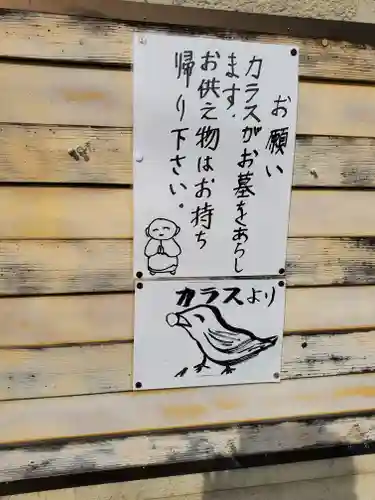 お願い
カラスがお墓をあらし
ます.
お供え物はお持ち
帰り下さい。
カラスより